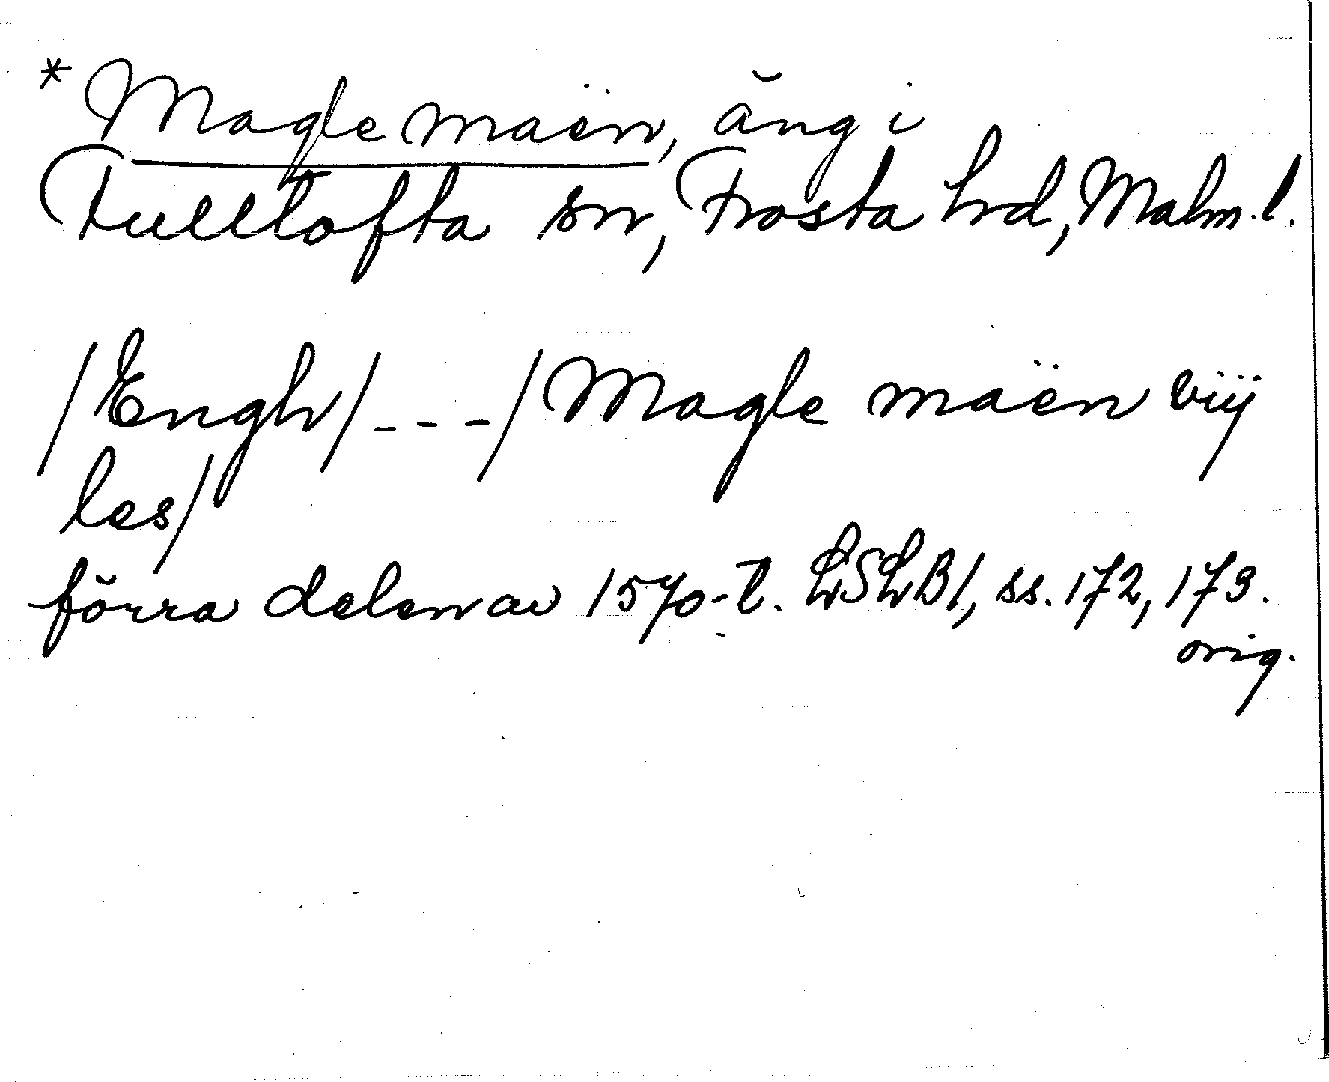 * Magle maën, äng i
Fulltofta sn, Frosta hrd, Malm. l.
/Engh/ - - - /Magle maën vij
les/
förra delen av 1570-t. LSLB1, ss. 172, 173.
orig.